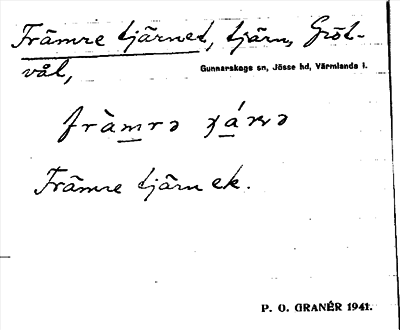 Främre tjärnet, tjärn, Gröt-
vål,
Gunnarskogs sn, Jösse hd, Värmlands l.
främrə
Främre tjärn ek.
P. O. GRANÉR 1941.